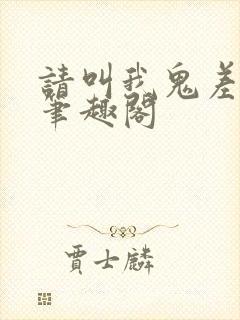 請叫我鬼差
筆趣閣
賈士麟